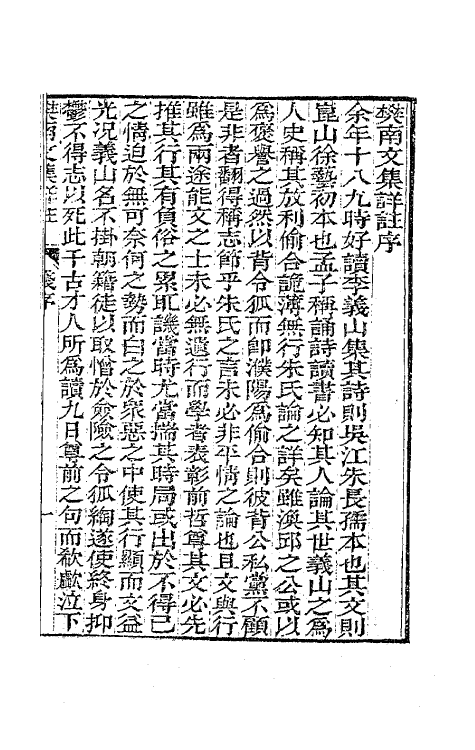 樊南文集詳註序
余年十八九時好讀李義山集其詩則吳江朱長孺本也其文則
崑山徐藝初本也孟子稱誦詩讀書必知其人論其世義山之為
人史稱其放利偷合詭薄無行朱氏論之詳矣雖漢邱之公或以
為褒譽之過然以背令狐而卽濮陽為偷合則彼背公私黨不顧
是非者翻得稱志節乎朱氏之言未必非平情之論也且文與行
雖為兩途能文之士未必無遺行而學者表彰前哲尊其文必先
推其行其有負俗之累取譏當時尤當揣其時局或出於不得已
之情迫於無可奈何之勢而白之於眾惡之中使其行顯而文益
光况義山名不掛朝籍徒以取憎於僉險之令狐綯遂使終身抑
鬱不得志以死此千古才人所為讀九日尊前之句而欷歔泣下
樊南文集詳註 序 一